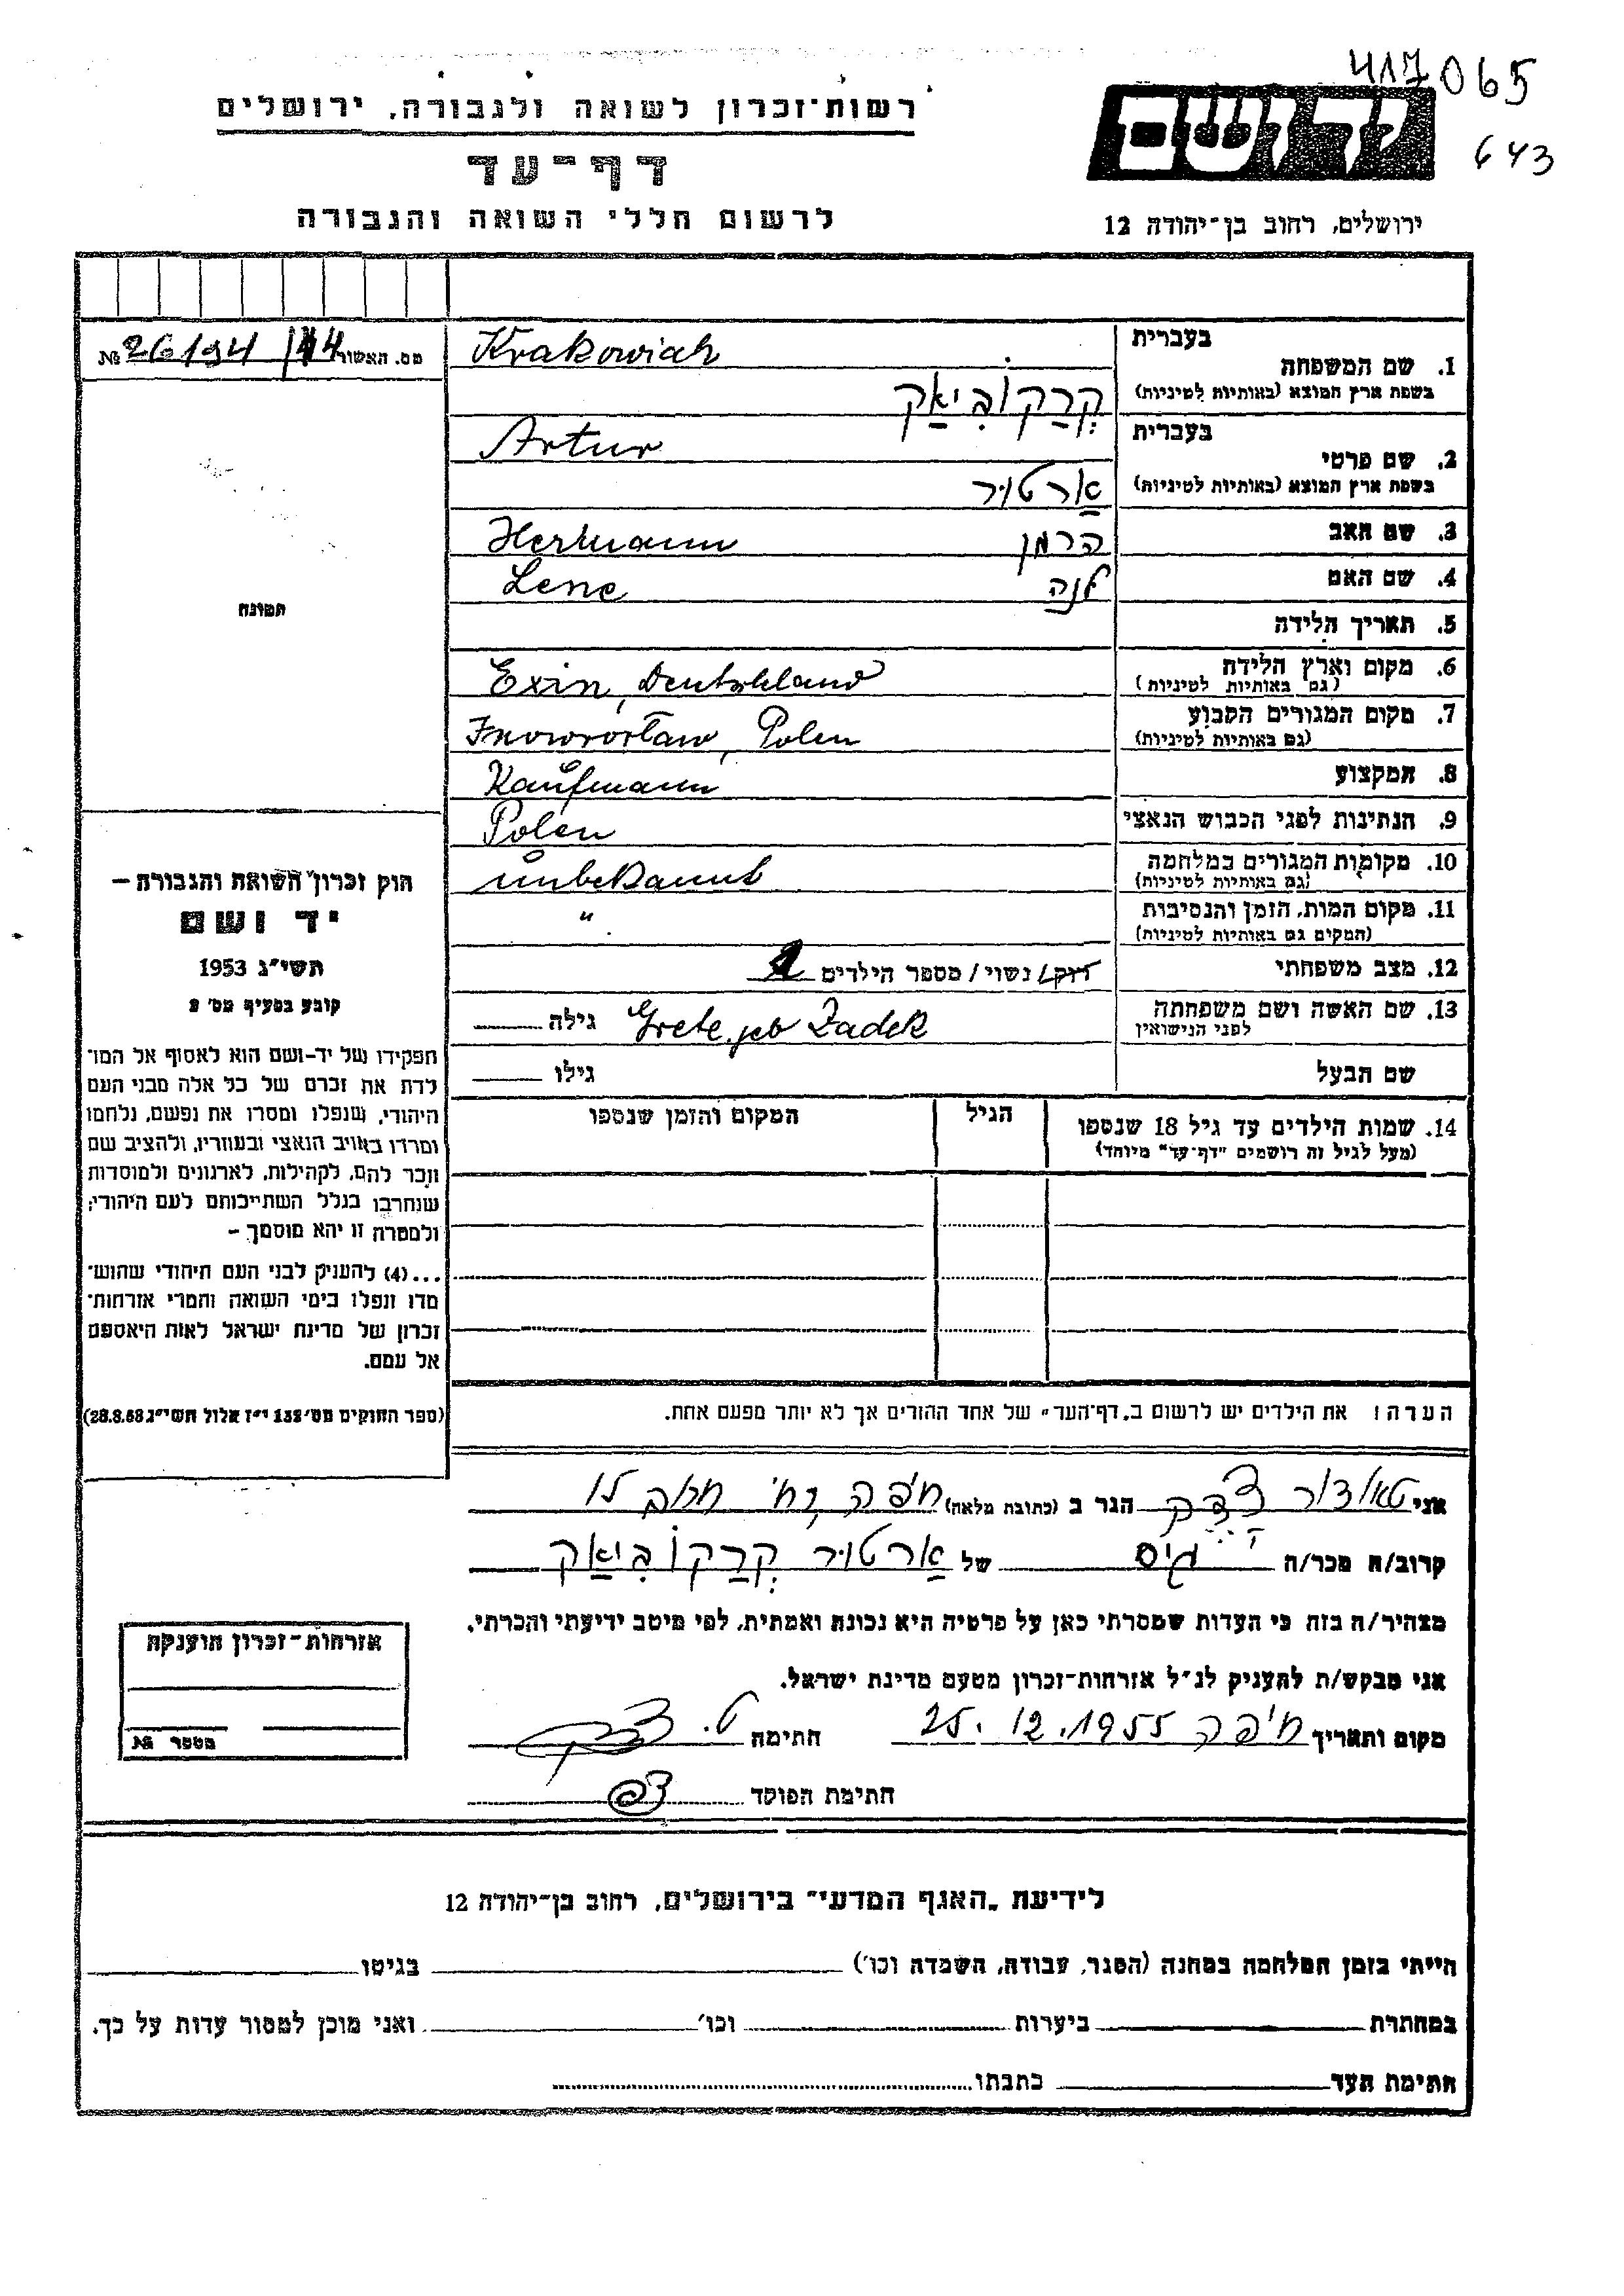 417065
643
רשות-זכרון לשואה ולגבורה, ירושלים
יד ושם
דף-עד
לרשום חללי השואה והגבורה
ירושלים, רחוב בן-יהודה 12
מס. האשור 26194/44 №
בעברית
1. שם המשפחה Krakowiak
בשפת ארץ המוצא (באותיות לטיניות) קרקוביאק
בעברית
2. שם פרטי Artur
בשפת ארץ המוצא (באותיות לטיניות) ארטור
3. שם האב הרמן Hermann
4. שם האם לנה Lene
5. תאריך הלידה
6. מקום וארץ הלידה Exin, Deutschland
(גם באותיות לטיניות)
7. מקום המגורים הקבוע Inowrocław, Polen
(גם באותיות לטיניות)
8. המקצוע Kaufmann
9. הנתינות לפני הכבוש הנאצי Polen
10. מקומות המגורים במלחמה unbekannt
(גם באותיות לטיניות)
11. מקום המות, הזמן והנסיבות "
(המקום גם באותיות לטיניות)
12. מצב משפחתי רווק/ נשוי/ מספר הילדים
13. שם האשה ושם משפחתה Grete geb Zadek גילה
לפני הנישואין
שם הבעל גילו
14. שמות הילדים עד גיל 18 שנספו הגיל המקום והזמן שנספו
(מעל לגיל זה רושמים "דף-עד" מיוחד)
הערה: את הילדים יש לרשום ב"דף-העד" של אחד ההורים אך לא יותר מפעם אחת.
תמונה
חוק זכרון השואה והגבורה –
יד ושם
תשי"ג 1953
קובע בסעיף מס' 2
תפקידו של יד-ושם הוא לאסוף אל המו־
לדת את זכרם של כל אלה מבני העם
היהודי, שנפלו ומסרו את נפשם, נלחמו
ומרדו באויב הנאצי ובעוזריו, ולהציב שם
וזכר להם, לקהילות, לארגונים ולמוסדות
שנחרבו בגלל השתייכותם לעם היהודי;
ולמטרה זו יהא מוסמך –
...(4) להעניק לבני העם היהודי שהוש־
מדו ונפלו בימי השואה והמרי אזרחות־
זכרון של מדינת ישראל לאות היאספם
אל עמם.
(ספר החוקים מס' 132 י"ז אלול תשי"ג 28.8.53)
אני טאודור צדק הגר ב (כתובת מלאה) חיפה, רח'
קרוב/ה מכר/ה גיס של ארטור קרקוביאק
מצהיר/ה בזה כי העדות שמסרתי כאן על פרטיה היא נכונה ואמתית, לפי מיטב ידיעתי והכרתי.
אני מבקש/ת להעניק לנ"ל אזרחות-זכרון מטעם מדינת ישראל.
מקום ותאריך חיפה 25.12.1955 חתימה ט. צדק
חתימת הפוקד
אזרחות-זכרון הוענקה
מספר №
לידיעת "האגף המדעי" בירושלים, רחוב בן-יהודה 12
הייתי בזמן המלחמה במחנה (הסגר, עבודה, השמדה וכו') בגיטו
במחתרת ביערות וכו' ואני מוכן למסור עדות על כך.
חתימת העד כתבתו